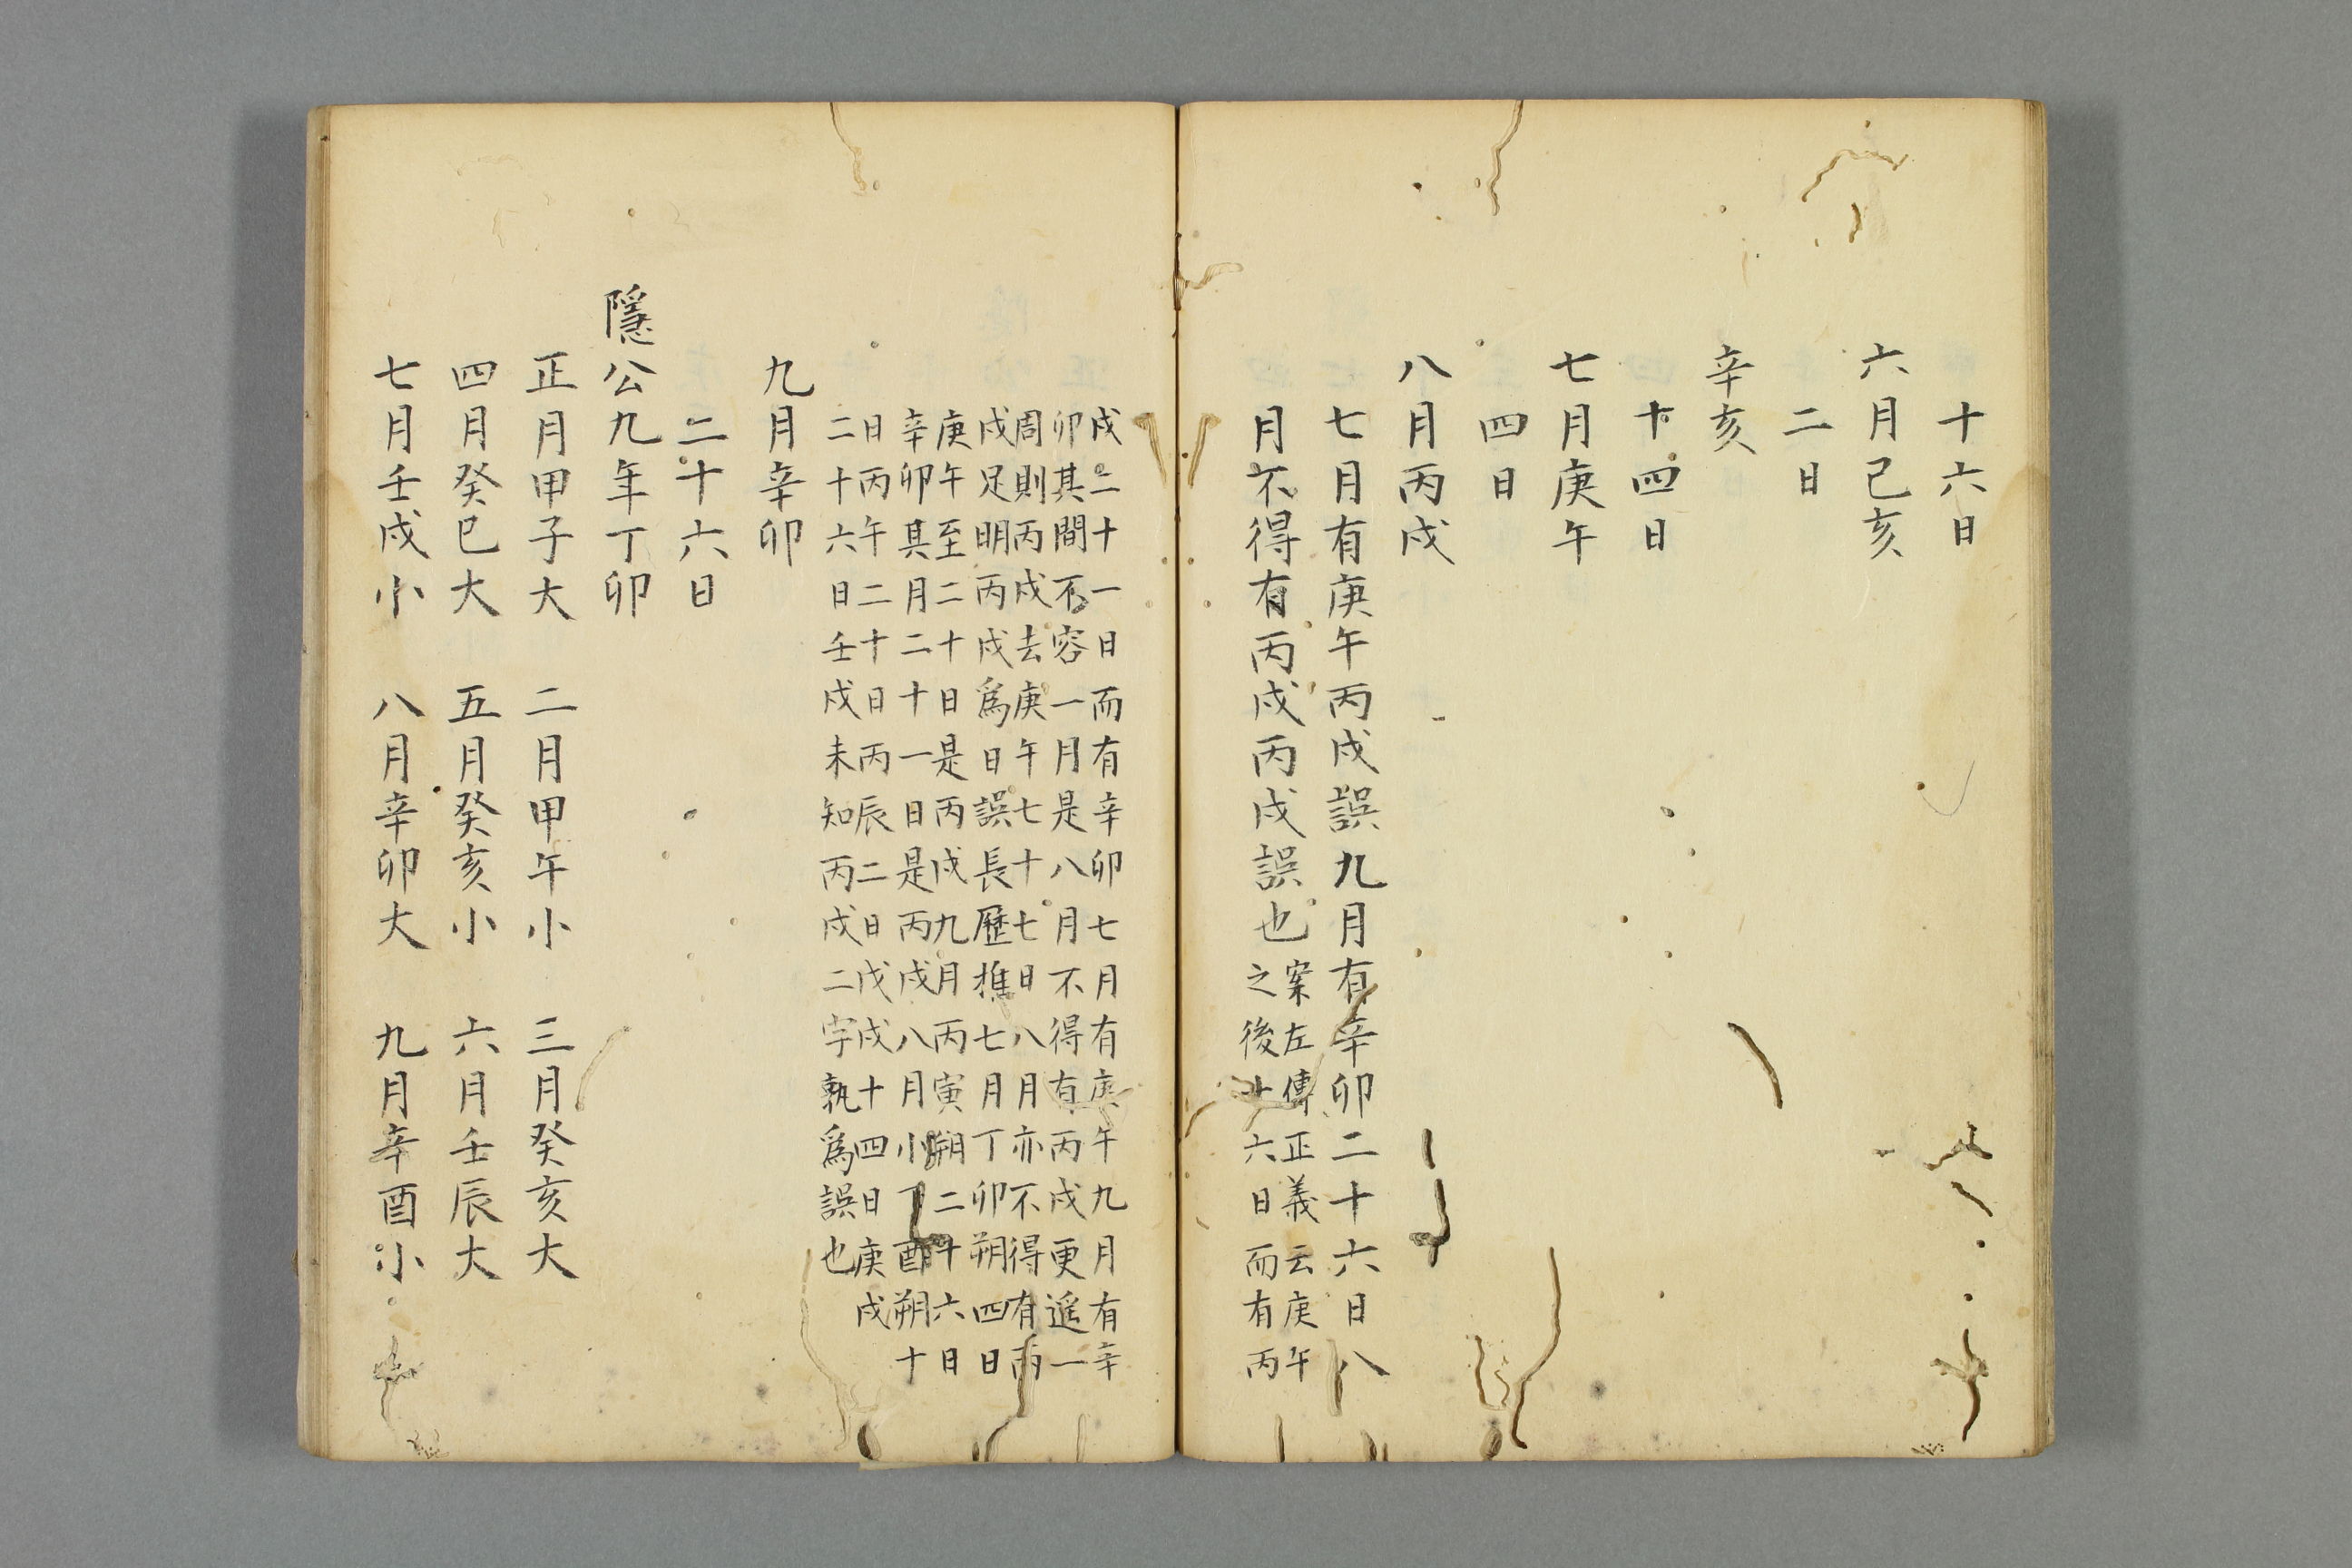 十六日
六月己亥
二日
辛亥
十四日
七月庚午
四日
八月丙戌
七月有庚午丙戌誤九月有辛卯二十六日八
月不得有丙戌丙戌誤也
案左傳正義云庚午
之後十六日而有丙
戌二十一日而有辛卯七月有庚午九月有辛
卯其間不容一月是八月不得有丙戌更遥一
周則丙戌去庚午七十七日八月亦不得有丙
戌足明丙戌爲日誤長歷推七月丁卯朔四日
庚午至二十日是丙戌九月丙寅朔二十六日
辛卯其月二十一日是丙戌八月小丁酉朔十
日丙午二十日丙辰二日戊戌十四日庚戌
二十六日壬戌未知丙戌二字孰爲誤也
九月辛卯
二十六日
隱公九年丁卯
正月甲子大 二月甲午小 三月癸亥大
四月癸巳大 五月癸亥小 六月壬辰大
七月壬戌小 八月辛卯大 九月辛酉小